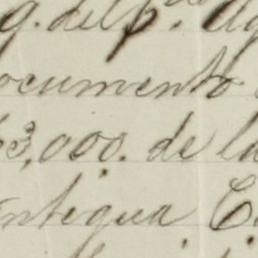 g. del p.
ocumento
63,000. de la
ntegua C